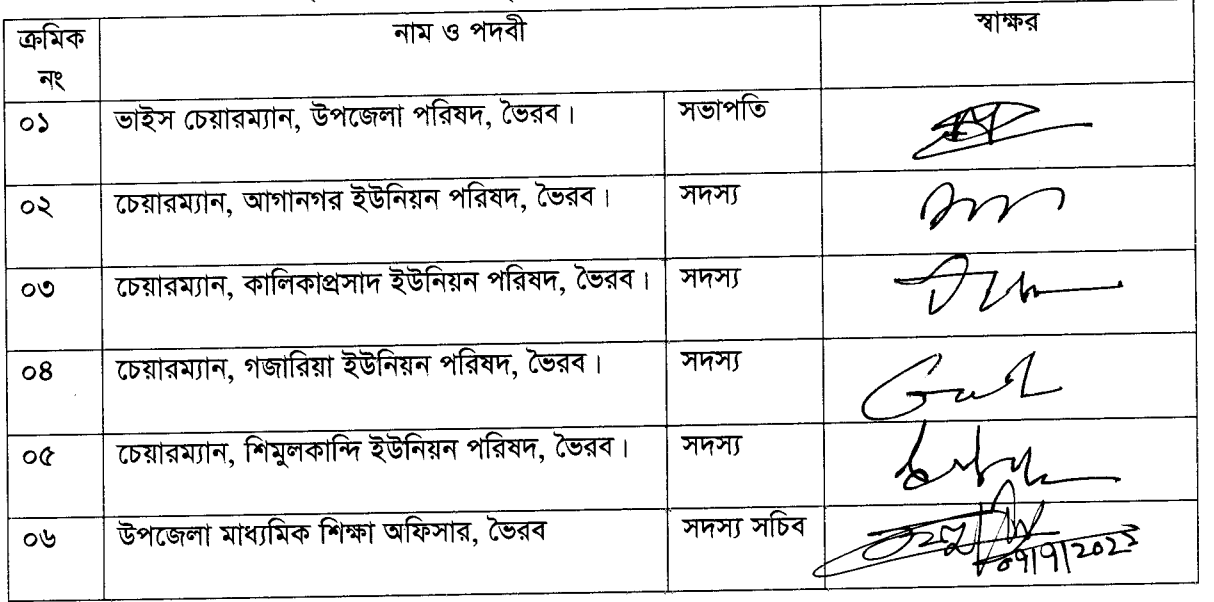 ক্রমিক নং নাম ও পদবী স্বাক্ষর
০১ ভাইস চেয়ারম্যান, উপজেলা পরিষদ, ভৈরব। সভাপতি
০২ চেয়ারম্যান, আগানগর ইউনিয়ন পরিষদ, ভৈরব। সদস্য
০৩ চেয়ারম্যান, কালিকাপ্রসাদ ইউনিয়ন পরিষদ, ভৈরব। সদস্য
০৪ চেয়ারম্যান, গজারিয়া ইউনিয়ন পরিষদ, ভৈরব। সদস্য
০৫ চেয়ারম্যান, শিমুলকান্দি ইউনিয়ন পরিষদ, ভৈরব। সদস্য
০৬ উপজেলা মাধ্যমিক শিক্ষা অফিসার, ভৈরব সদস্য সচিব